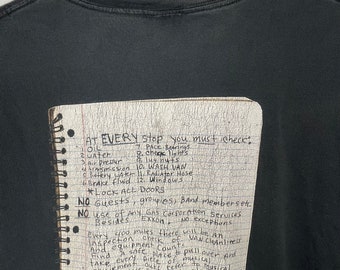 AT EVERY stop you must check:
1. OIL 7. PACK Bearings
2. water 8. check lights
3. Air pressure 9. lug nuts
4. transmission 10. WASH VAN
5. battery water 11. Radiator Hose
6. Brake fluid 12. Windows
*LOCK ALL DOORS
NO Guests, groupies, Band members etc.
NO use of Any Gas corporation Services
Besides EXXON, NO exceptions
Every miles there will be an
inspection, chek of VAN cleanliness
and equipment of,
find a safe place to pull over and
take every piece of musical